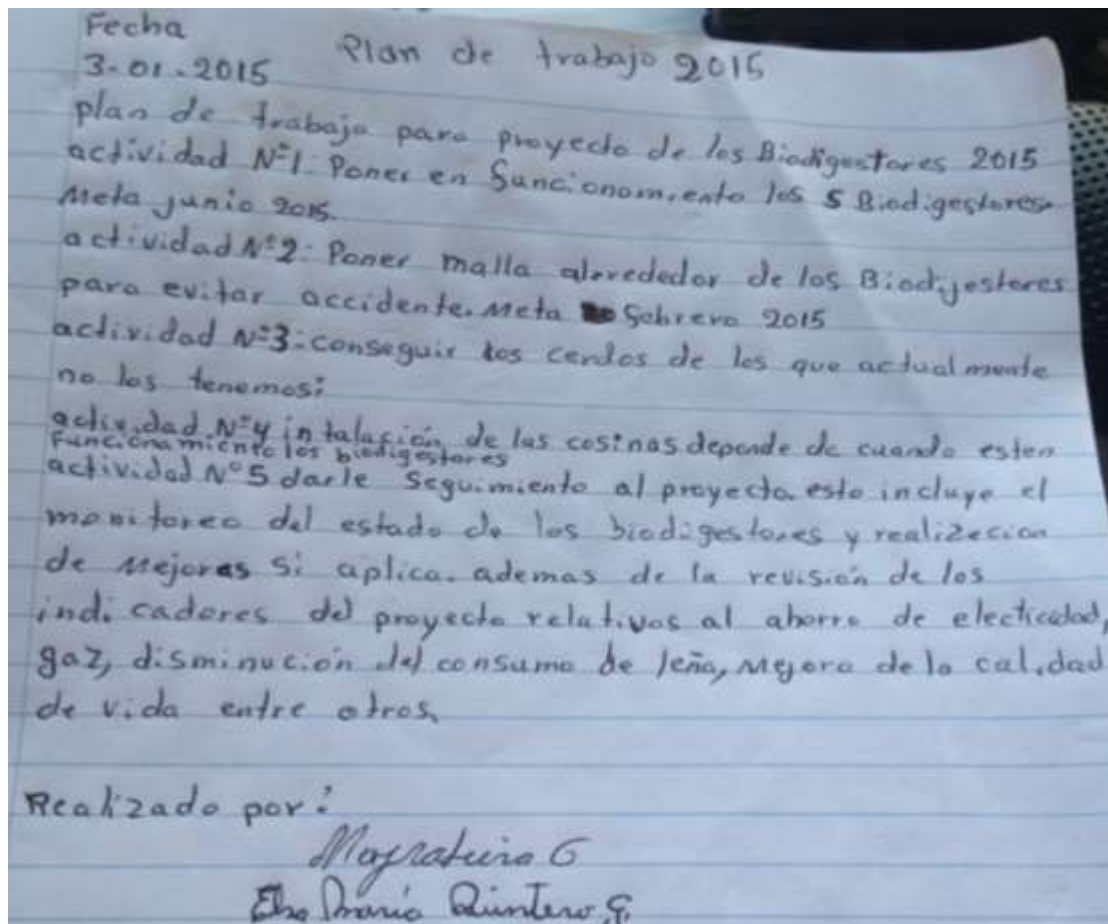 Fecha
Plan de trabajo 2015
3-01-2015
plan de trabajo para proyecto de los Biodigestores 2015
actividad Nº1: Poner en funcionamiento los 5 Biodigestores.
Meta junio 2015.
actividad Nº2: Poner malla alarededor de los Biodijestores
para evitar accidente. Meta febrero 2015
actividad Nº3: conseguir los cerdos de los que actual mente
no los tenemos:
actividad Nº4 intalación de las cosinas depende de cuando esten
Funcionamiento los biodigestores
actividad Nº5 darle Seguimiento al proyecto. esto incluye el
monitoreo del estado de los biodigestores y realizacion
de mejoras si aplica. ademas de la revisión de los
indicadores del proyecto relativos al ahorro de electicidad,
gaz, disminución del consumo de leña, mejora de la calidad
de vida entre otros.
Realizado por:
María Quintero